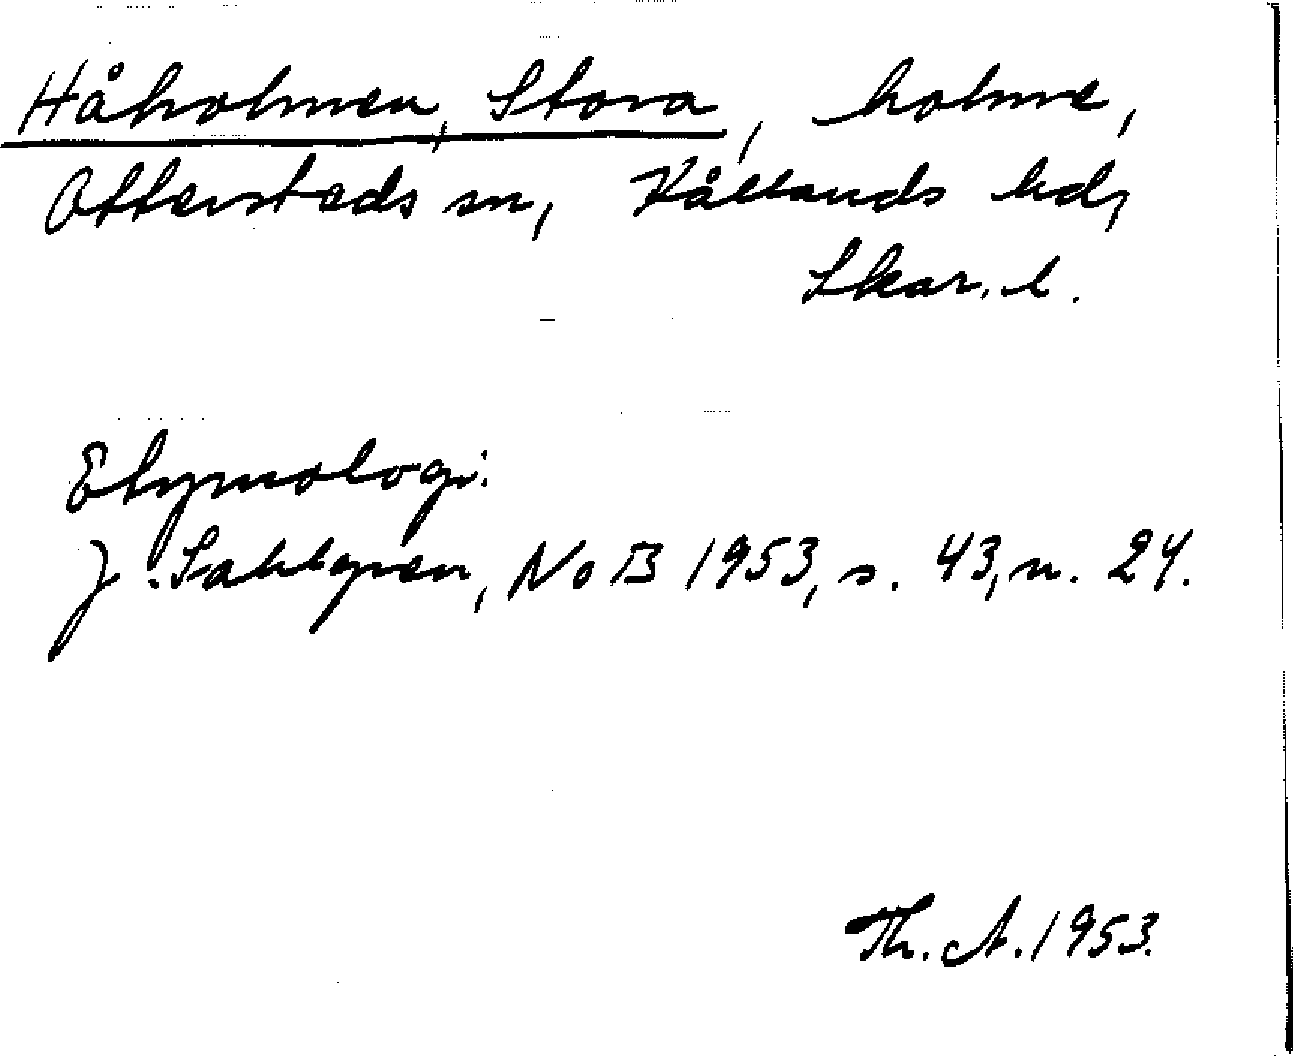 Håholmen, Stora, holme,
Otterstads sn, Kållands hd,
Skar. l.
Etymologi:
J. Sahlgren, NoB 1953, s. 43, n. 24.
Th. A. 1953.